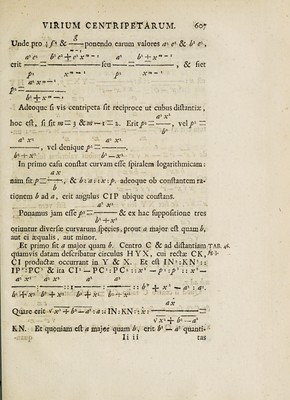 VIRIUM CENTRIPETARUM. 607
g
Unde pro ½ f² & — ponendo earum valores a² c² & b² c²,
m—1
a² c² b² c² + c² x m—1 a² c²
erit —— = —— seu —— = ——, & fiet
p² x m—1 p² x m—1
a² x m—1
p² = ——
b² + x m—1
Adeoque si vis centripeta sit reciproce ut cubus distantiæ,
a² x²
hoc est, si sit m = 3 & m — 1 = 2. Erit p² = ——, vel p² =
b²
a² x² a² x²
——, vel denique p² = ——.
b² + x² b² — x²
In primo casu constat curvam esse spiralem logarithmicam:
a x
nam sit p = ——, & b : a :: x : p. adeoque ob constantem ra-
b
tionem b ad a, erit angulus CIP ubique constans.
a² x²
Ponamus jam esse p² = —— & ex hac suppositione tres
b² + x²
oriuntur diversæ curvarum species, prout a major est quam b,
aut ei æqualis, aut minor.
Et primo sit a major quam b. Centro C & ad distantiam TAB. 46.
quamvis datam describatur circulus HYX, cui rectæ CK,
CI productæ occurrant in Y & X. Et est IN² : KN² ::
IP² : PC² & ita CI² — PC² : PC² :: x² — p² : p² :: x² —
a² x² a² x² a² a²
—— : —— :: 1 — —— : —— :: b² + x² — a² : a².
b² + x² b² + x² b² + x² b² + x²
a x
Quare erit √x² + b² — a² : a :: IN : KN :: x : ——
√x² + b² — a²
KN. Et quoniam est a major quam b, erit b² — a² quanti-
Ii ii tas